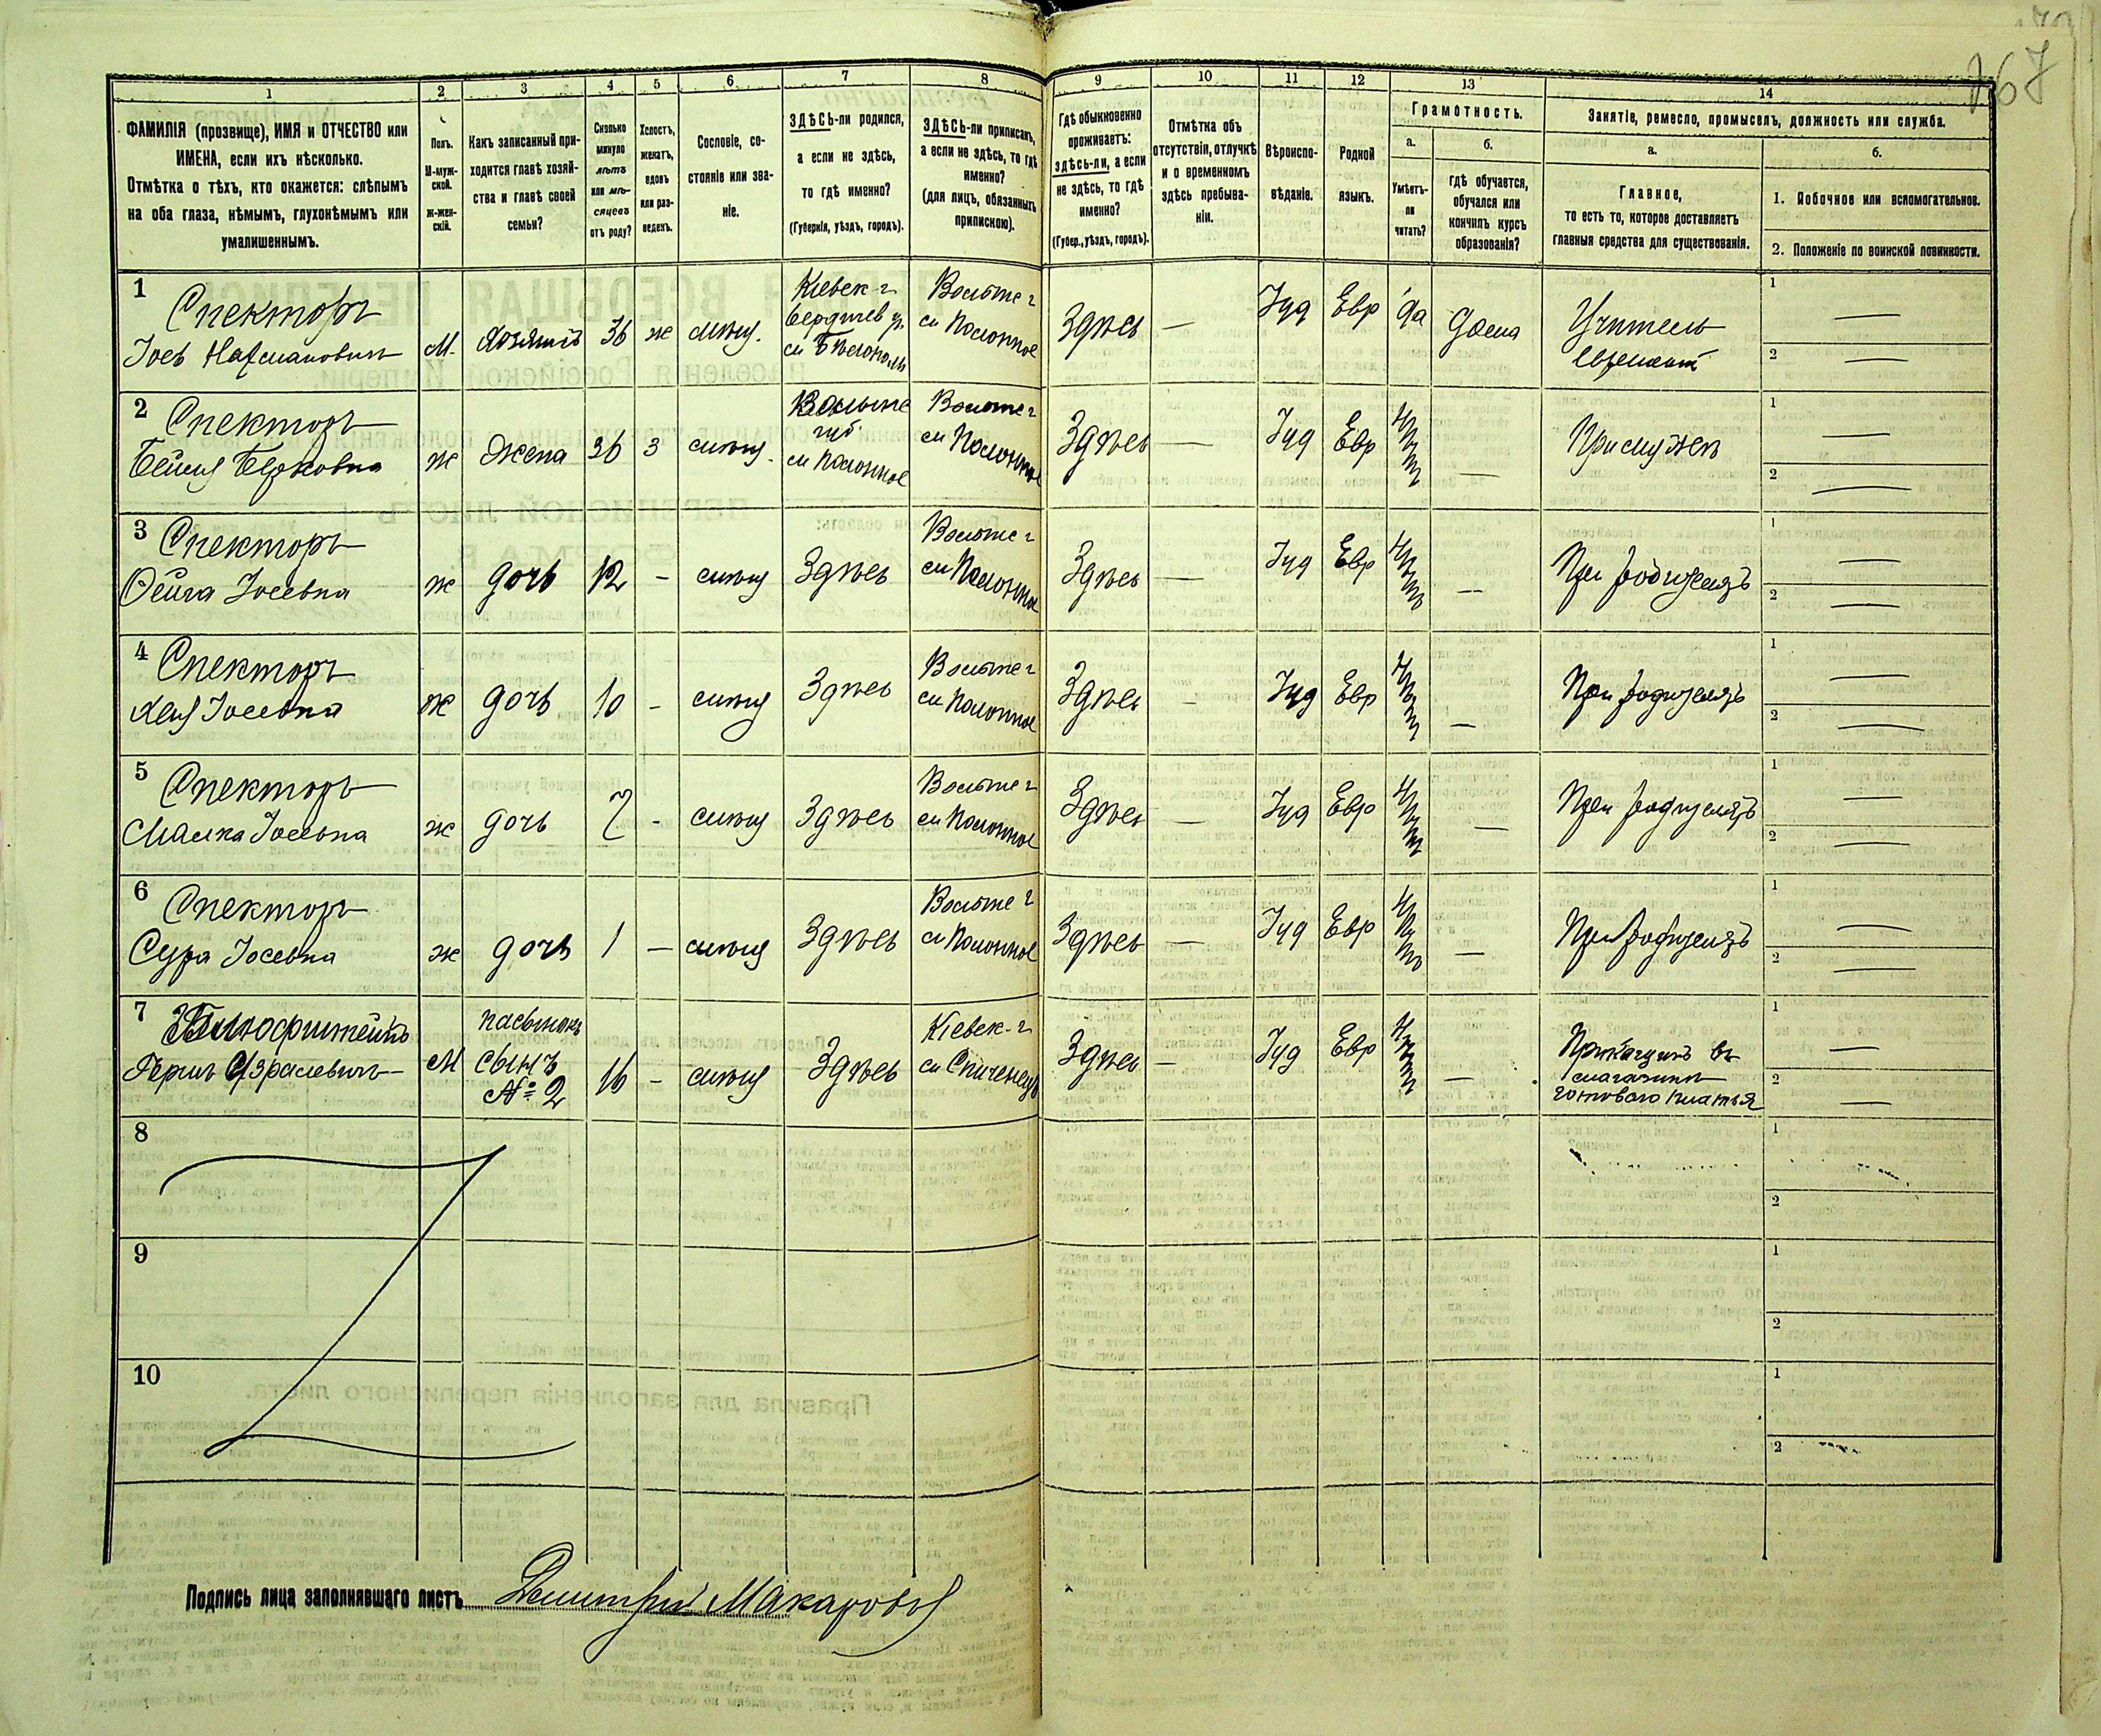 167
1 2 3 4 5 6 7 8 9 10 11 12 13 14
ФАМИЛІЯ (прозвище), ИМЯ и ОТЧЕСТВО или
ИМЕНА, если ихъ нѣсколько.
Отмѣтка о тѣхъ, кто окажется: слѣпымъ
на оба глаза, нѣмымъ, глухонѣмымъ или
умалишеннымъ.
Полъ.
М-муж-
ской.
ж-жен-
скій.
Какъ записанный при-
ходится главѣ хозяй-
ства и главѣ своей
семьи?
Сколько
минуло
лѣтъ
или мѣ-
сяцевъ
отъ роду?
Холостъ,
женатъ,
вдовъ
или раз-
веденъ.
Сословіе, со-
стояніе или зва-
ніе.
ЗДѢСЬ-ли родился,
а если не здѣсь,
то гдѣ именно?
(Губернія, уѣздъ, городъ).
ЗДѢСЬ-ли приписанъ,
а если не здѣсь, то гдѣ
именно?
(для лицъ, обязанныхъ
припискою).
Гдѣ обыкновенно
проживаетъ:
здѣсь-ли, а если
не здѣсь, то гдѣ
именно?
(Губер., уѣздъ, городъ).
Отмѣтка объ
отсутствіи, отлучкѣ
и о временномъ
здѣсь пребыва-
ніи.
Вѣроиспо-
вѣданіе.
Родной
языкъ.
Грамотность.
а.
Умѣетъ-
ли
читать?
б.
гдѣ обучается,
обучался или
кончилъ курсъ
образованія?
Занятіе, ремесло, промыселъ, должность или служба.
а.
Главное,
то есть то, которое доставляетъ
главныя средства для существованія.
б.
1. Побочное или вспомогательное.
2. Положеніе по воинской повинности.
1 Спекторъ
Іось Нахмановичъ
М. хозяинъ 36 ж мѣщ.
Кіевск г
Бердичев у.
м Бѣлополь
Волынс г
м Полонное
Здѣсь — Іуд Евр да дома
Учитель
еврейский
1 —
2 —
2 Спекторъ
Бейля Берковна
ж жена 36 з мѣщ.
Волынс
губ
м Полонное
Волынс г
м Полонное
Здѣсь — Іуд Евр нѣтъ —
При мужѣ
1 —
2 —
3 Спекторъ
Фейга Іосевна
ж дочь 12 - мѣщ Здѣсь
Волынс г
м Полонное
Здѣсь — Іуд Евр нѣтъ —
При родителяхъ
1 —
2 —
4 Спекторъ
Хая Іосевна
ж дочь 10 - мѣщ Здѣсь
Волынс г
м Полонное
Здѣсь - Іуд Евр нѣтъ —
При родителяхъ
1 —
2 —
5 Спекторъ
Малка Іосевна
ж дочь 7 - мѣщ Здѣсь
Волынс г
м Полонное
Здѣсь — Іуд Евр нѣтъ —
При родителяхъ
1 —
2 —
6 Спекторъ
Сура Іосевна
ж дочь 1 — мѣщ Здѣсь
Волынс г
м Полонное
Здѣсь — Іуд Евр нѣтъ —
При родителяхъ
1 —
2 —
7
Герш Израилевичъ
М
пасынокъ
сынъ
№ 2
16 - мѣщ Здѣсь
Кіевск-г
м Спиченцы
Здѣсь — Іуд Евр нѣтъ —
Прикащикъ въ
магазинѣ
готоваго платья
1 —
2 —
8
1
2
9
1
2
10
1
2
Подпись лица заполнявшаго листъ Дмитрій Макаровъ